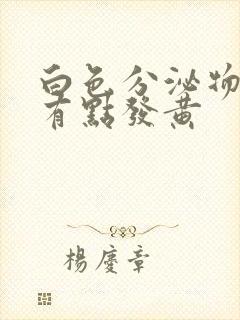 白色分泌物
有點發黃
楊慶章